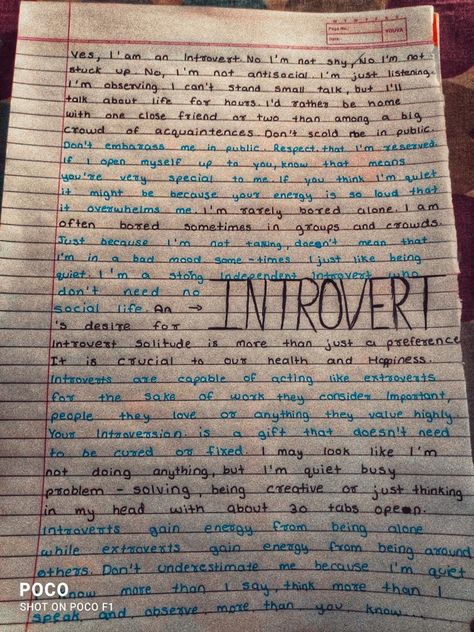 M T W T F S S
Page No.:
Date:
YOUVA
Yes, I am an Introvert No. I'm not shy, No I'm not
stuck up. No, I'm not antisocial I'm just listening.
I'm observing. I can't stand small talk, but I'll
talk about life for hours. I'd rather be home
with one close friend or two than among a big
crowd of acquaintences. Don't scold me in public.
Don't embarass me in public. Respect that I'm reserved.
If I open myself up to you, know that means
you're very special to me. If you think I'm quiet
it might be because your energy is so loud that
it overwhelms me. I'm rarely bored alone. I am
often bored sometimes in groups and crowds.
Just because I'm not talking, doesn't mean that
I'm in a bad mood some-times I just like being
quiet. I'm a stong Independent introvert who
don't need no
social life. An → INTROVERT
's desire for
Introvert solitude is more than just a preference
It is crucial to our health and Happiness.
Introverts are capable of acting like extroverts
for the sake of work they consider Important,
people they love or anything they value highly.
Your Introversion is a gift that doesn't need
to be cured or fixed. I may look like I'm
not doing anything, but I'm quiet busy
problem - solving, being creative or just thinking
in my head with about 30 tabs open.
Introverts gain energy from being alone
while extroverts gain energy from being around
others. Don't underestimate me because I'm quiet
know more than I say, think more than I
speak and observe more than you know...
POCO
SHOT ON POCO F1